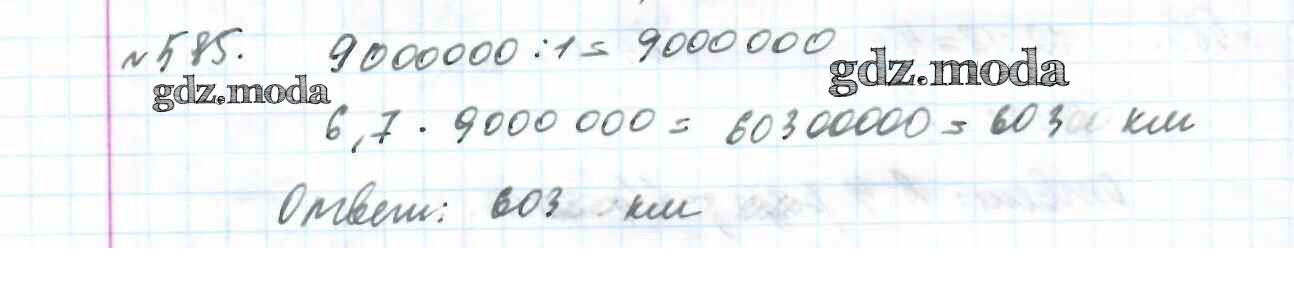 №585. 9000000 : 1 = 9000000
gdz.moda gdz.moda
6,7 · 9000 000 = 60300000 = 603 км
Ответ: 603 км